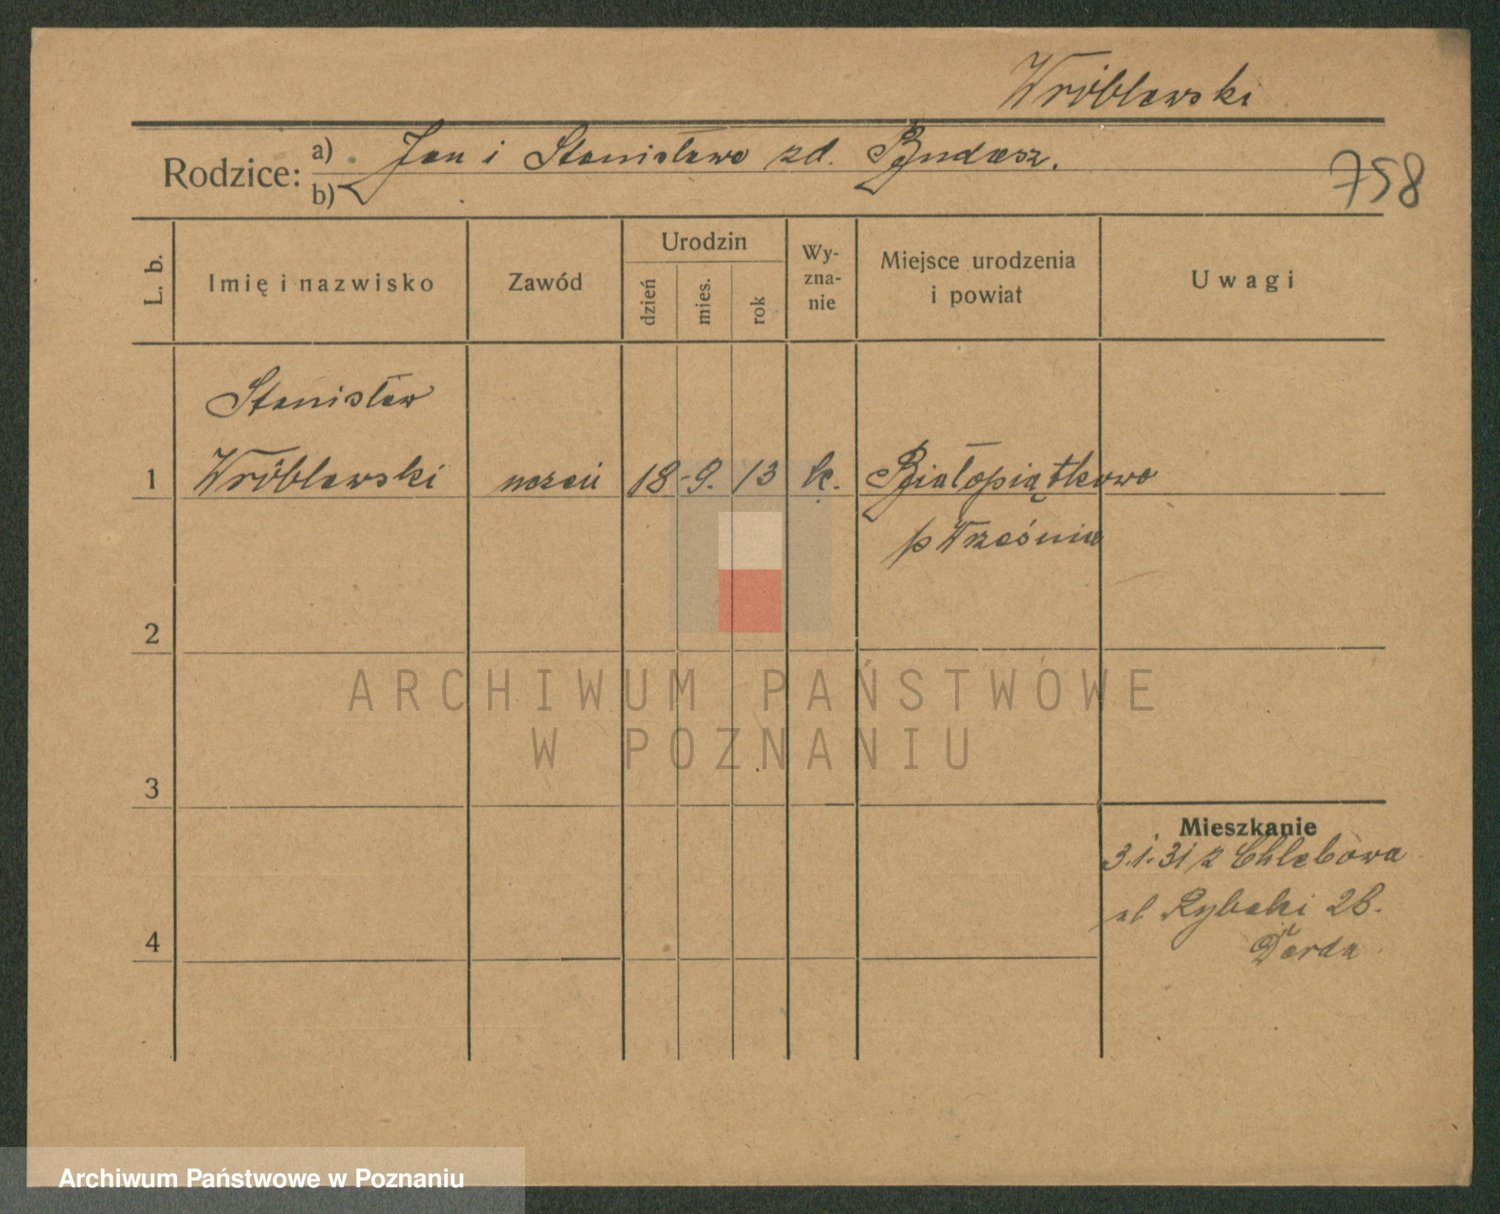 Wróblewski
Rodzice: a) Jan i Stanisława zd. Byndasz.
b)
758
L. b.
Imię i nazwisko
Zawód
Urodzin
dzień
mies.
rok
Wy-
zna-
nie
Miejsce urodzenia
i powiat
Uwagi
Stanisław
1 Wróblewski uczeń 18 - 9. 13 k. Białopiątkowo
p Września
2
ARCHIWUM PAŃSTWOWE
W POZNANIU
3
Mieszkanie
3.1.31 z Chlebowa
ul Rybaki 28.
4
Darda
Archiwum Państwowe w Poznaniu